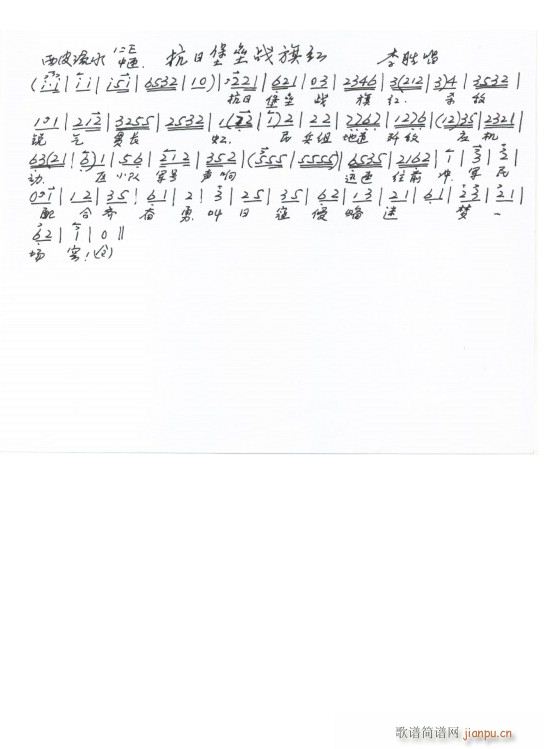 西皮流水 1=E 抗日堡垒战旗红 李胜唱
(i i | i i | i 5 i | 6532 | 10) | 221 | 621 | 03 | 2346 | 3(212 | 3)4 | 3532 |
抗日 堡垒 战 旗 红. 杀敌
101 | 212 | 3255 | 2532 | 1(22 | 1)2 | 22 | 2767 | 1276 | (12)35 | 2321 |
锐气 贯长 虹. 民 兵组 地道 歼敌 在机
63(21 | 3)1 | 56 | 212 | 352 | (555 | 5555) | 6535 | 2162 | 1 | 3 | 2 |
动. 区 小队 军号 声响 迅速 往前 冲. 军 民
01 | 12 | 35 | 61 | 2 | 3 | 25 | 35 | 62 | 13 | 21 | 61 | 23 | 21 |
配 合 齐 奋 勇. 叫 日 寇 侵 略 迷 梦 一
62 | 1 | 0 ||
场 空!
歌谱简谱网 jianpu.cn